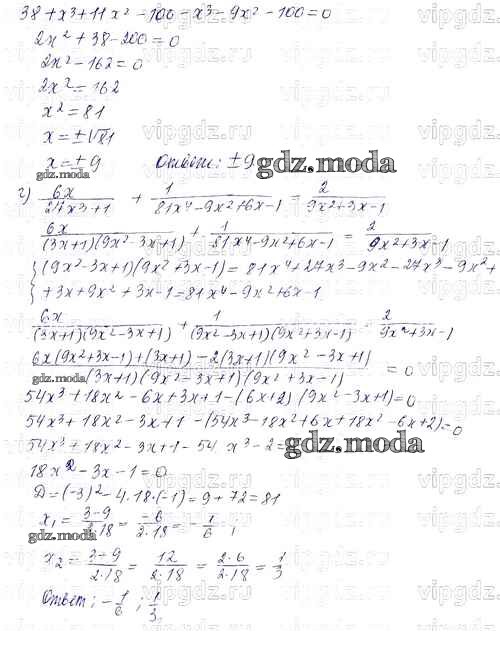 38 + x³ + 11x² - 100 - x³ - 9x² - 100 = 0
2x² + 38 - 200 = 0
2x² - 162 = 0
2x² = 162
x² = 81
x = ±√81
x = ± 9 Ответ: ± 9
gdz.moda
г) 6x/(27x³+1) + 1/(81x⁴-9x²+6x-1) = 2/(9x²+3x-1)
6x/((3x+1)(9x²-3x+1)) + 1/(81x⁴-9x²+6x-1) = 2/(9x²+3x-1)
{(9x²-3x+1)(9x²+3x-1) = 81x⁴+27x³-9x²-27x³-9x²+
+3x+9x²+3x-1=81x⁴-9x²+6x-1
6x/((3x+1)(9x²-3x+1)) + 1/((9x²-3x+1)(9x²+3x-1)) - 2/(9x²+3x-1)
(6x(9x²+3x-1)+(3x+1)-2(3x+1)(9x²-3x+1))/((3x+1)(9x²-3x+1)(9x²+3x-1)) = 0
gdz.moda
54x³+18x²-6x+3x+1-(6x+2)(9x²-3x+1)=0
54x³+18x²-3x+1-(54x³-18x²+6x+18x²-6x+2)=0
54x³+18x²-3x+1-54x³-2=
gdz.moda
18x²-3x-1=0
D=(-3)²-4·18·(-1)=9+72=81
x₁ = (3-9)/(2·18) = -6/(2·18) = -1/6 ;
gdz.moda
x₂ = (3-9)/(2·18) = 12/(2·18) = (2·6)/(2·18) = 1/3
Ответ: -1/6 ; 1/3
vipgdz.com